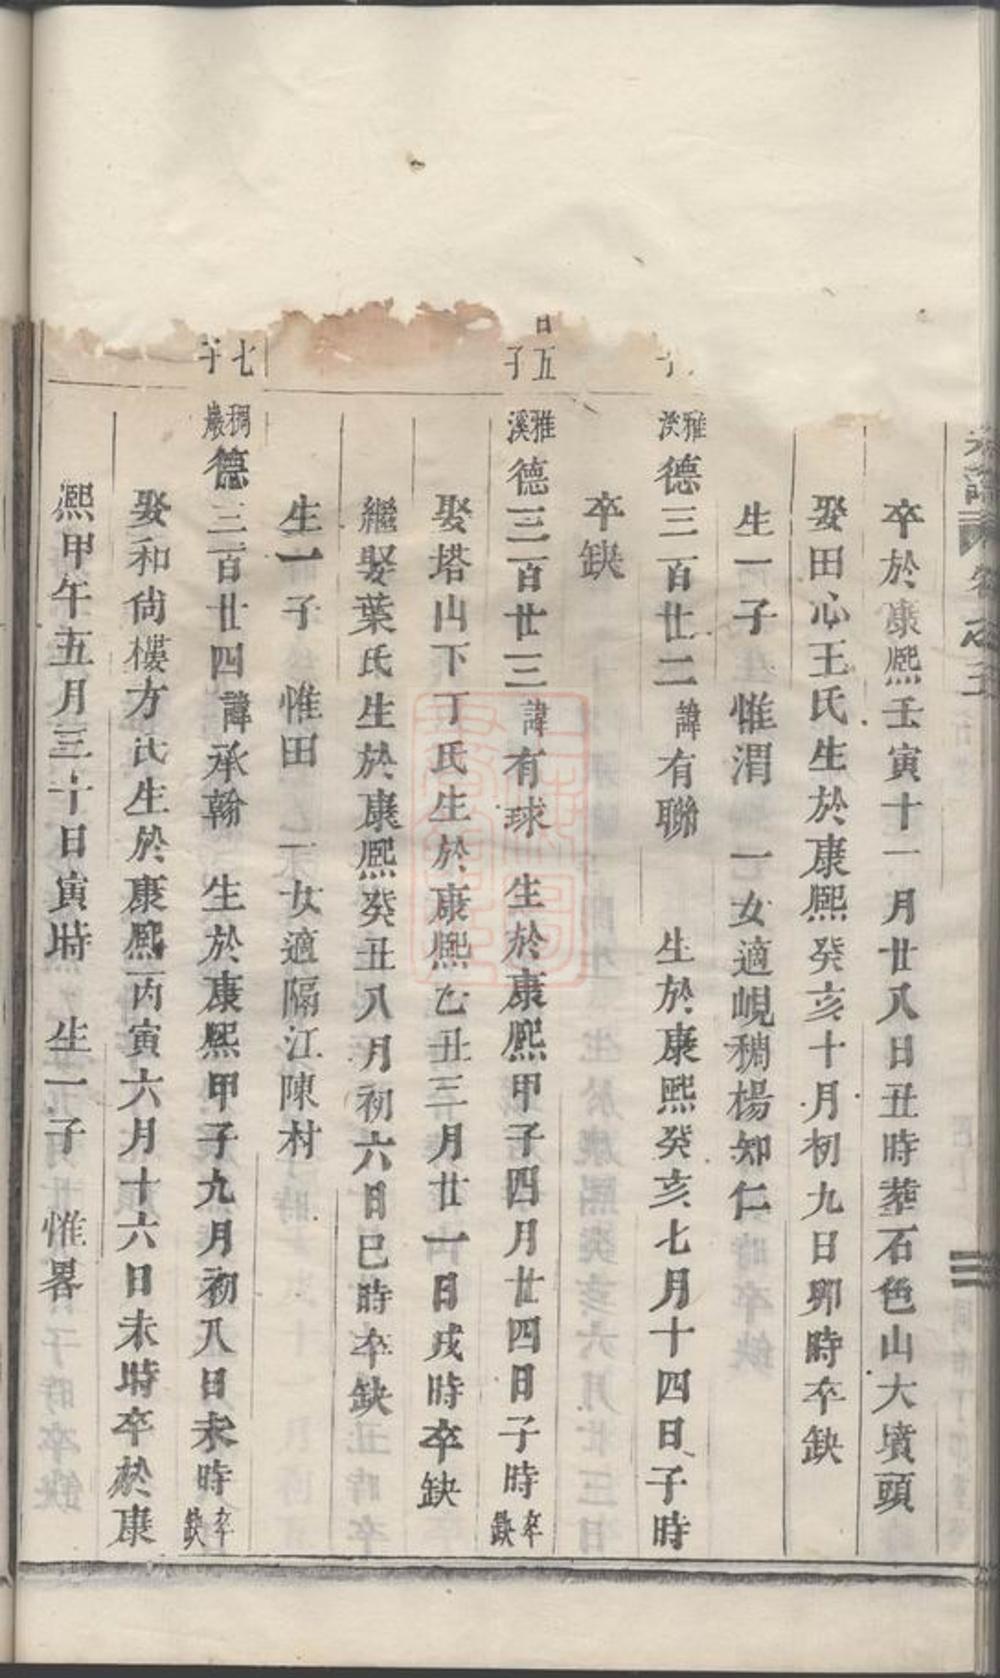 卒於康熙壬寅十一月廿八日丑時葬石色山大墳頭
娶田心王氏生於康熙癸亥十月初九日卯時卒缺
生一子 惟渭 一女適峴稠楊知仁
雅淡德三百廿二諱有聯 生於康熙癸亥七月十四日子時
卒缺
五子
雅溪德三百廿三諱有球 生於康熙甲子四月廿四日子時卒缺
娶塔山下丁氏生於康熙乙丑三月廿一日戌時卒缺
繼娶葉氏生於康熙癸丑八月初六日巳時卒缺
生一子 惟田 一女適隔江陳村
七子
稠巖德三百廿四諱承翰 生於康熙甲子九月初八日未時卒缺
娶和尚樓方氏生於康熙丙寅六月十六日未時卒於康
熙甲午五月三十日寅時 生一子 惟畧